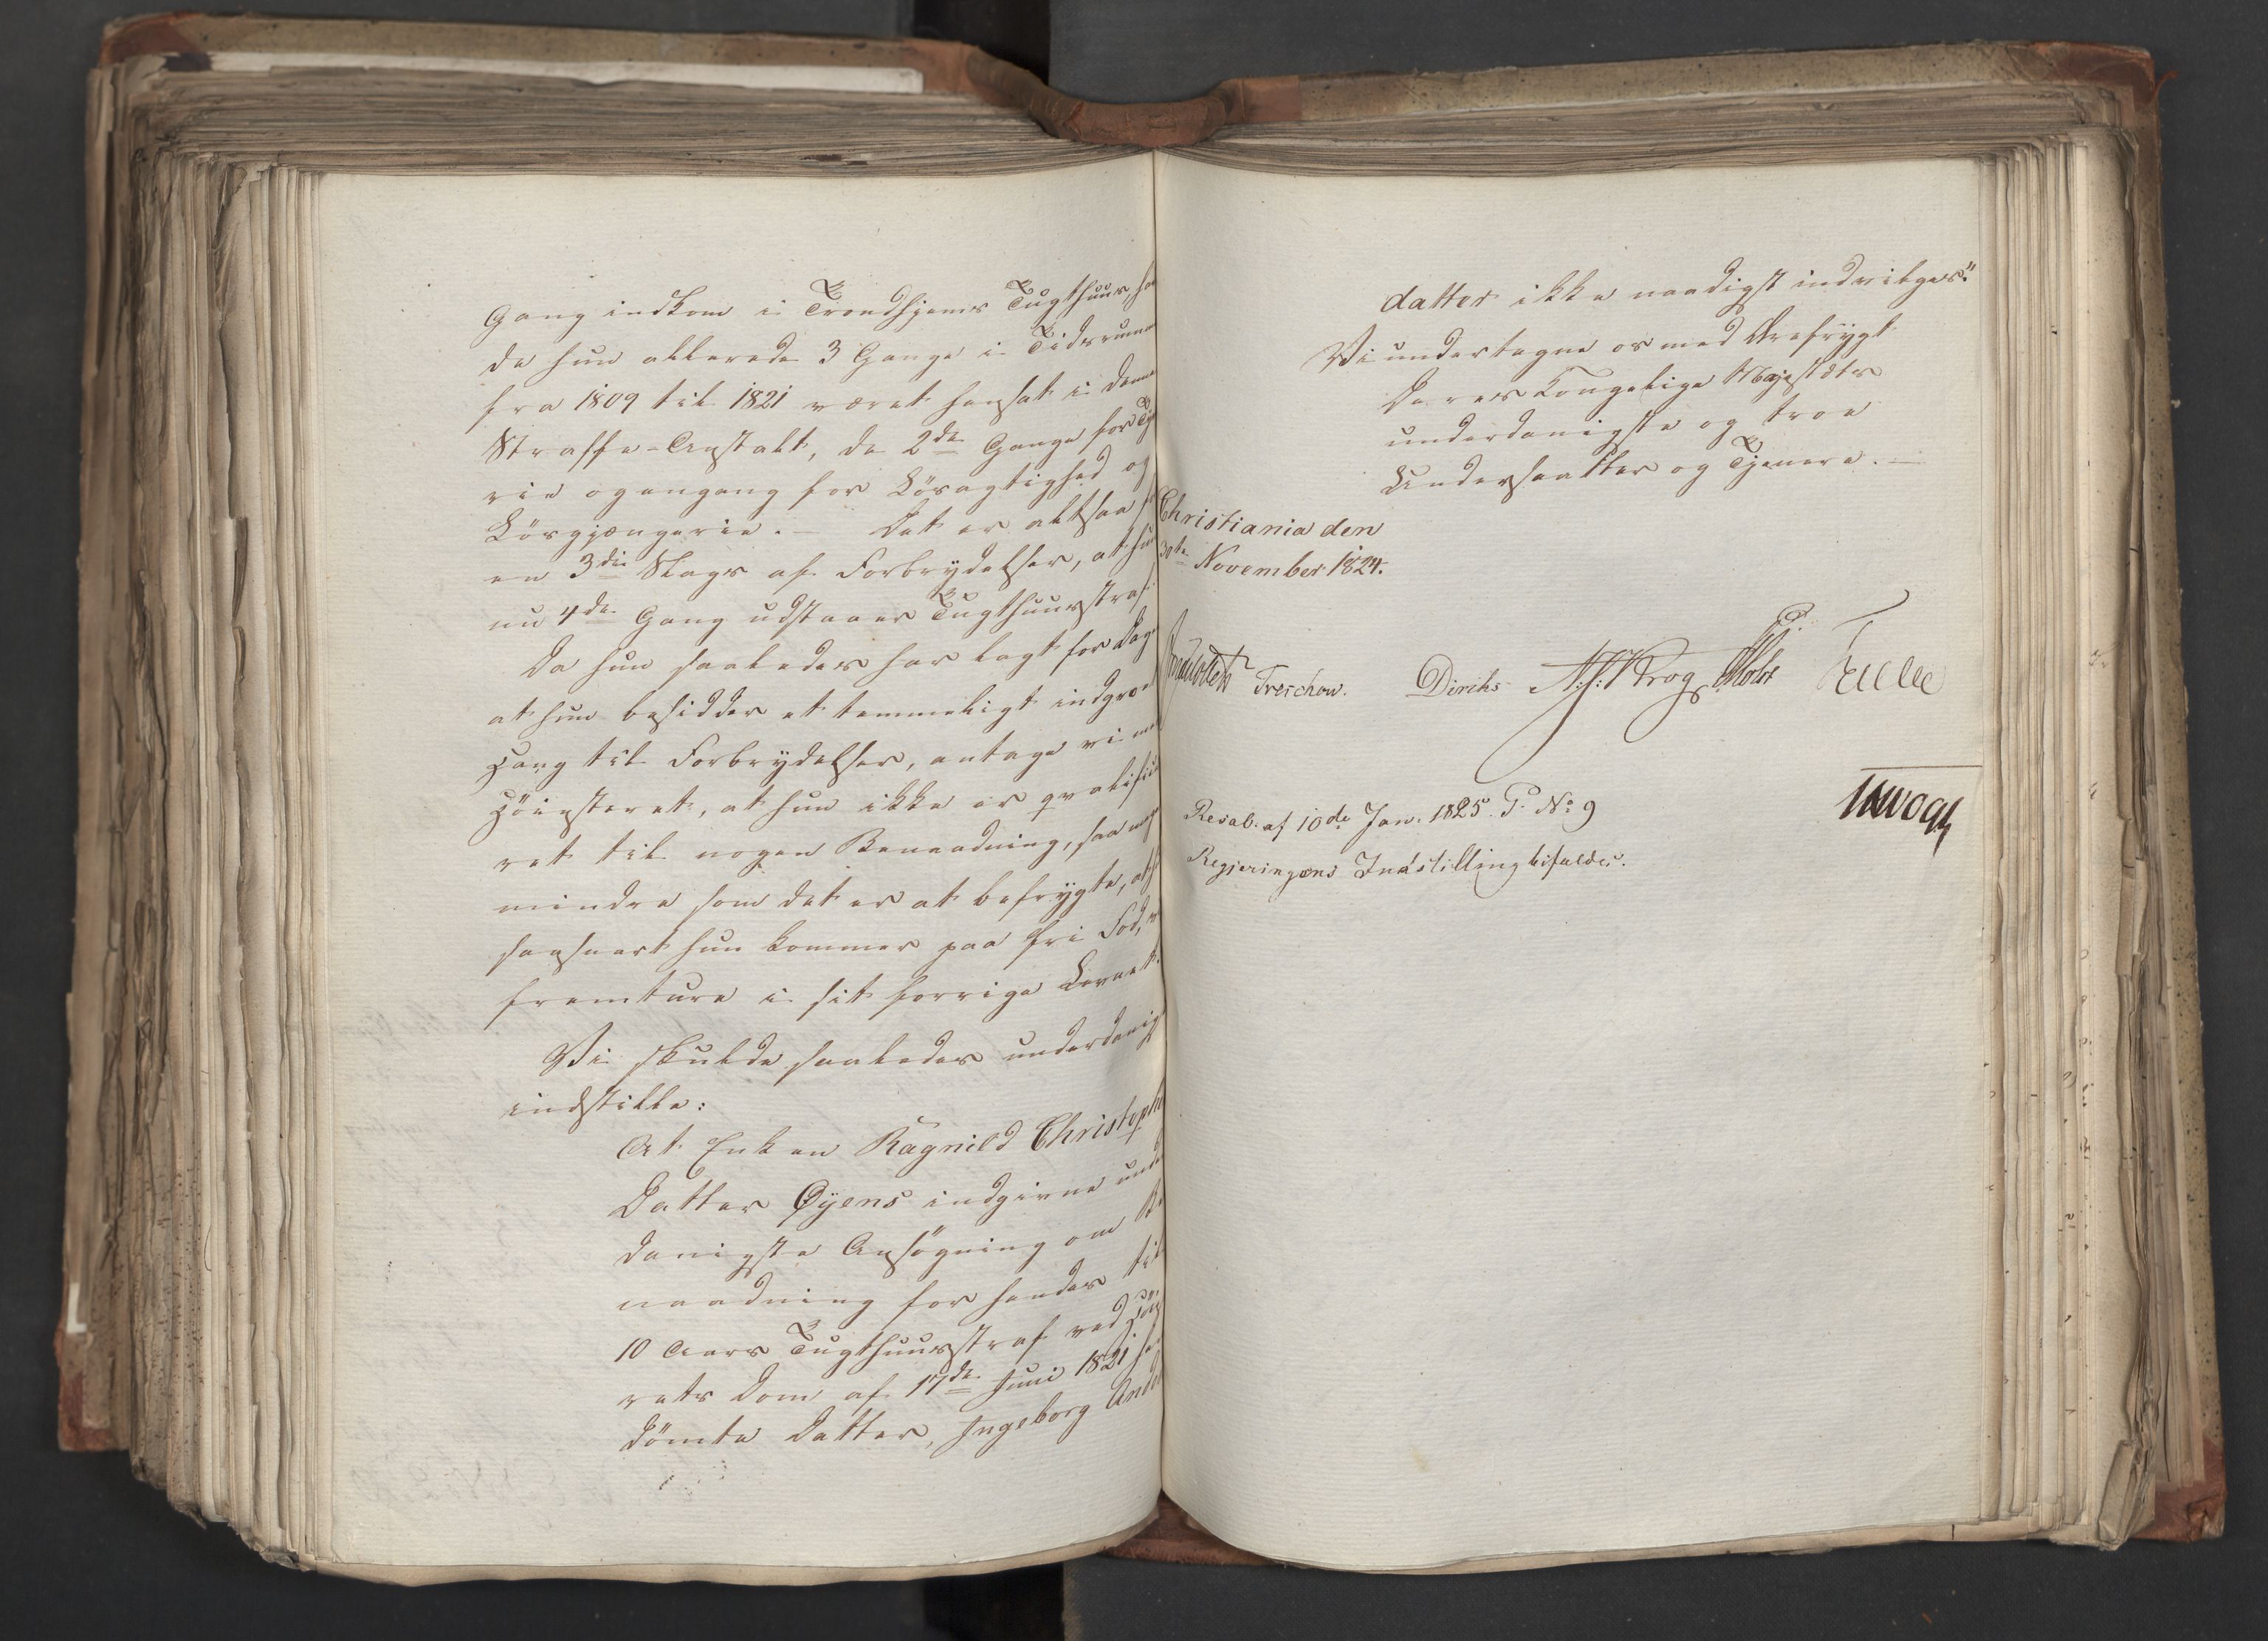 Gang indkom i Trondhjems Tugthuus ha
de hun allerede 3 Gange i Tidsrumme
fra 1809 til 1821 været hensat i denne
Straffe-Anstalt, de 2de Gange for Ty
rie og engang for Lösagtighed og
Lösgjængerie. – Det er altsaa for
en 3die Slags af Forbrydelser, at hun
nu 4de Gang udstaaer Tugthuusstraf
Da hun saaledes har lagt for Dage
at hun besidder et temmeligt indgroet
Hang til Forbrydelser, antage vi med
Höiesteret, at hun ikke er qvalifice
ret til nogen Benaadning, saa meget
mindre som det er at befrygte, at
saasnart hun kommer paa fri Fod, vil
fremture i sit forrige Levnet.
Vi skulde saaledes underdanigst
indstille:
At Enken Ragnild Christophe
Datter Øyens indgivne under
danigste Ansögning om Be
naadning for hendes til
10 Aars Tugthuusstraf ved Höieste
rets Dom af 17de Juni 1821 hen
dömte Datter, Ingeborg Anders
datter ikke naadigst indvilges."
Vi undertegne os med Ærefrygt
Deres Kongelige Majestæts
underdanigste og troe
Undersaatter og Tjenere. –
Christiania den
30te November 1824.
Treschow. Diriks Krog Motzf
Resol. af 10de Jan. 1825. P. No 9
Regjeringens Indstilling bifaldes.